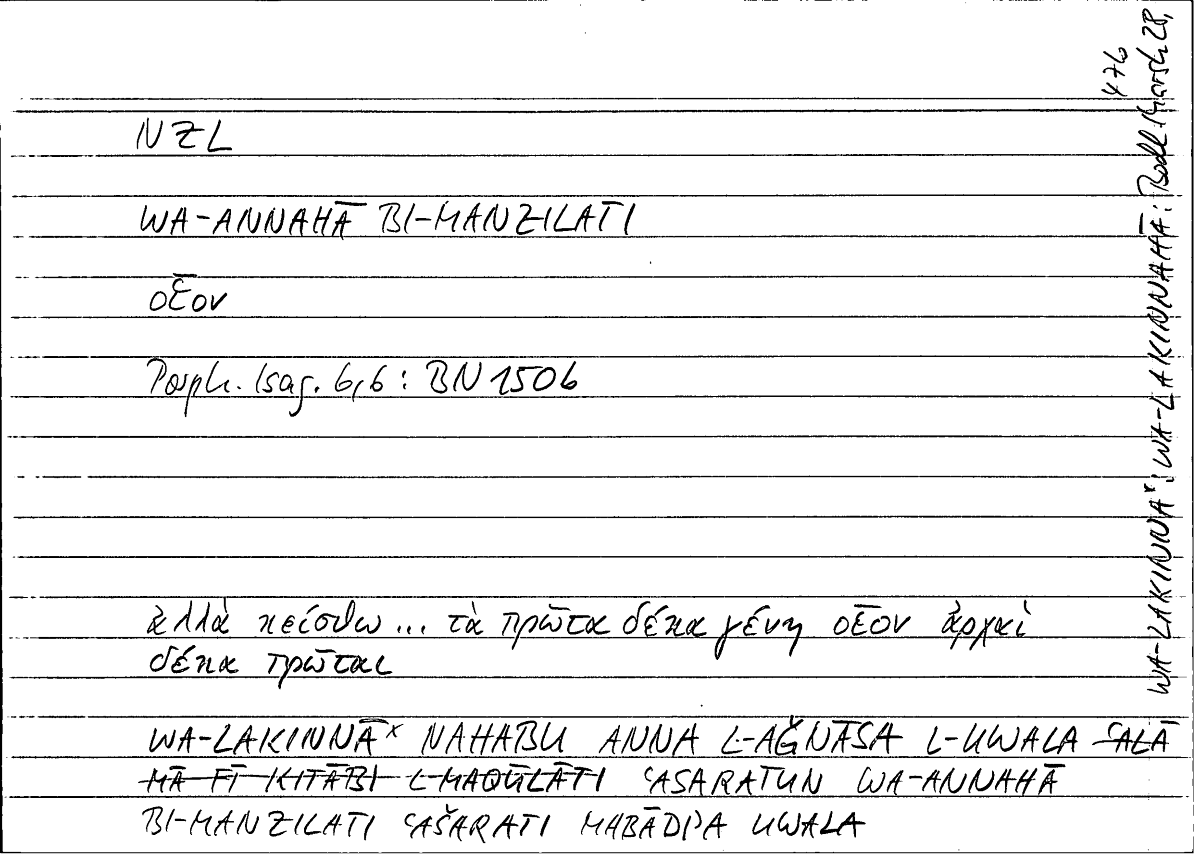 NZL
WA-ANNAHĀ BI-MANZILATI
οἷον
Porph. Isag. 6,6 : BN 1506
ἀλλὰ κείσθω ... τὰ πρῶτα δέκα γένη οἷον ἀρχαὶ
δέκα πρῶται
WA-LAKINNĀˣ NAHABU ANNA L-AǦNĀSA L-UWALA ʿALĀ
MĀ FĪ KITĀBI L-MAQŪLĀTI ʿASARATUN WA-ANNAHĀ
BI-MANZILATI ʿAŠARATI MABĀDIʾA UWALA
WA-LAKINNAˣ: WA-LAKINNAHĀ: Bodl. Marsh 28,
476